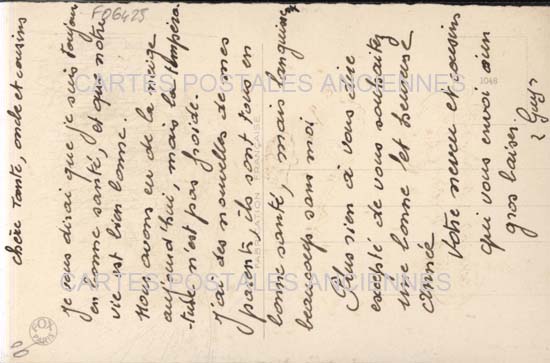 FOG425
chère Tante, oncle et cousins
Je vous dirai que je suis toujours
en bonne santé, et que notre
vie est bien bonne
Nous avons eu de la neige
aujourd'hui, mais la tempéra-
-ture n'est pas froide.
J'ai des nouvelles de mes
parents, ils sont tous en
bonne santé, mais languisse
beaucoup sans moi
Plus rien à vous dire
excepté de vous souhaitez
une bonne et heureuse
Année
Votre neveu et cousins
qui vous envoi aun
gros baiser.
Guy
1048
FABRICATION FRANÇAISE
FOX
PARIS
CARTES POSTALES ANCIENNES
CARTES POSTALES ANCIENNES